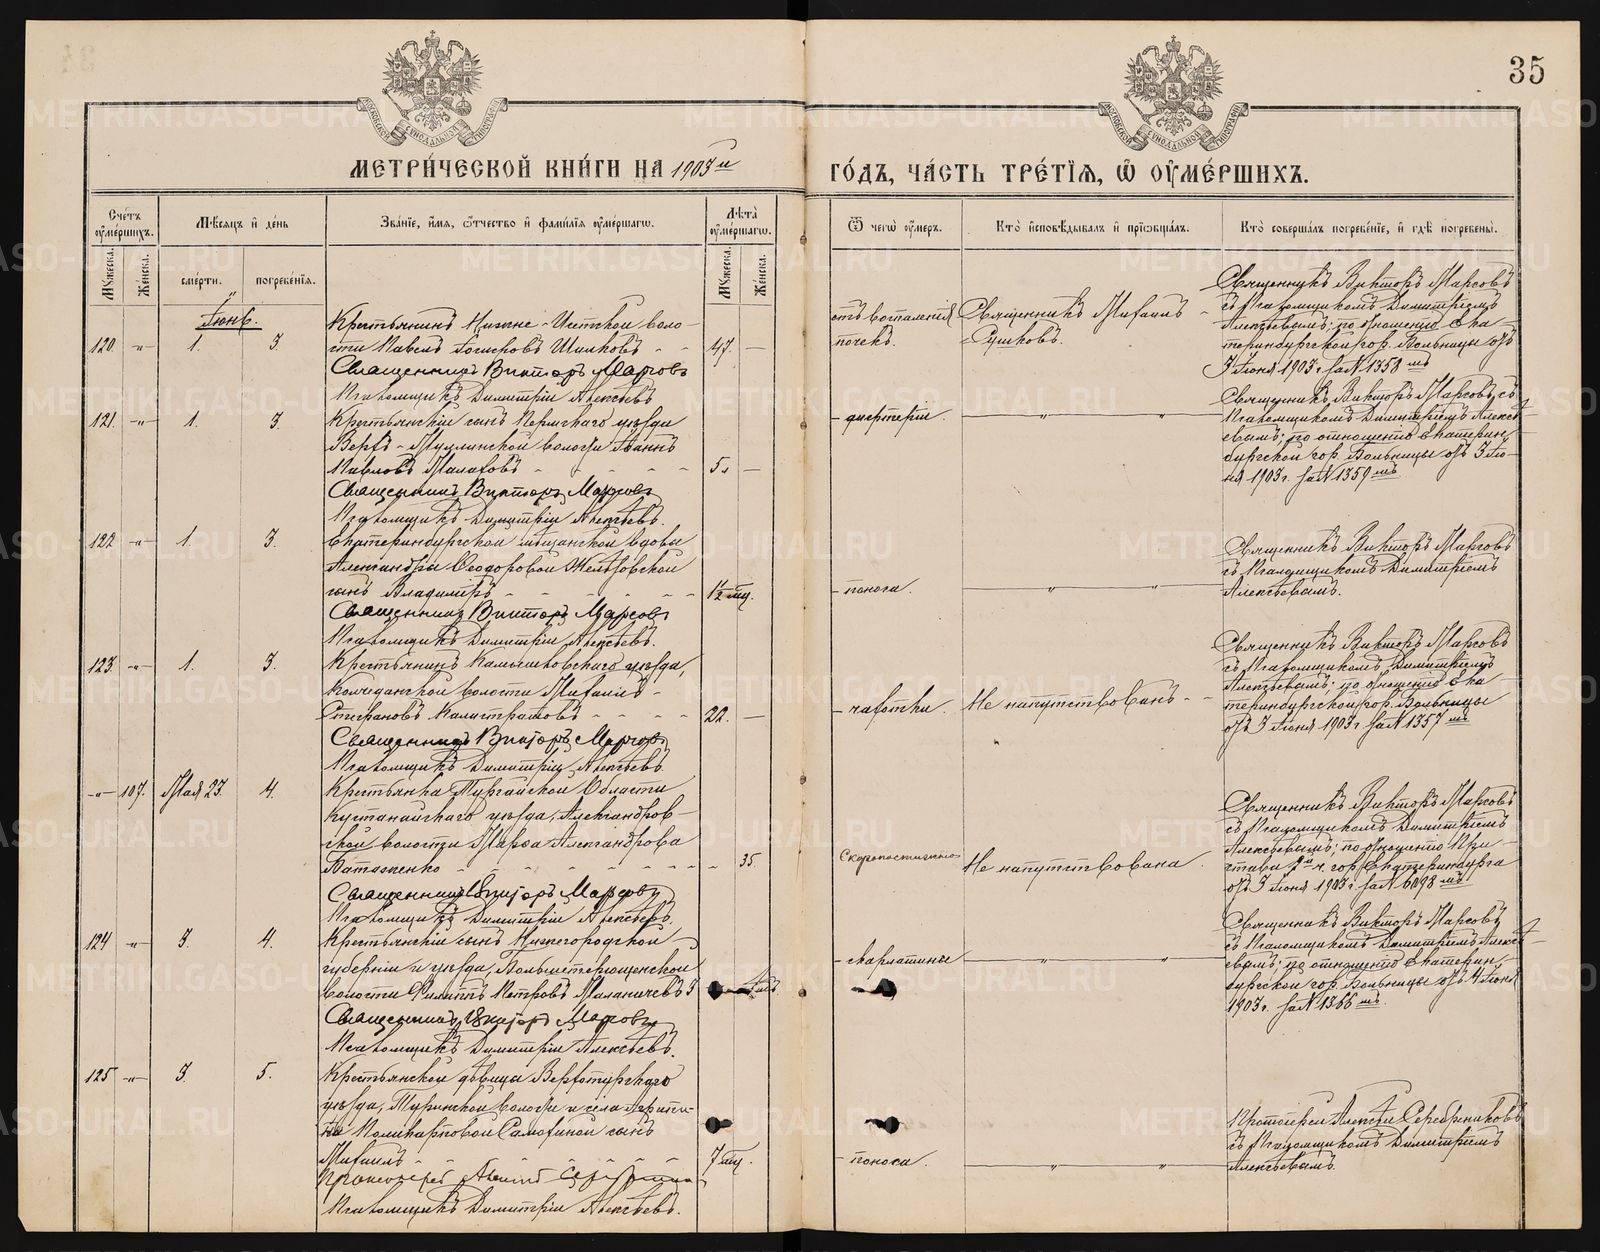 35
МЕТРИ́ЧЕСКОЙ КНИ́ГИ НА 1903й
ГО́ДЪ, ЧА́СТЬ ТРЕ́ТІѦ, Ѡ ОУМЕ́РШИХЪ.
Сче́тъ оуме́ршихъ.
Мѣ́сяцъ и де́нь
Зва́ніе, и́мя, ѻ́тчество и фами́лія оуме́ршагѡ.
Лѣта̀ оуме́ршагѡ.
Ѿ чегѡ̀ оу́меръ.
Кто̀ и҆сповѣ́дывалъ и҆ прїѡбща́лъ.
Кто̀ соверша́лъ погребе́ніе, и҆ гдѣ̀ погребены̀.
Му́жеска. Же́нска.
сме́рти. погребе́нія.
Му́жеска. Же́нска.
Іюнь.
120. -„- 1. 3.
Крестьянинъ Нижне-Исетской воло-
сти Павелъ Шишковъ - - 47. —
Священникъ Викторъ Марсовъ
Псаломщикъ Димитрій Алексѣевъ
отъ воспаленія
почекъ.
Священникъ Михаилъ
Сушковъ.
Священникъ Викторъ Марсовъ
съ Псаломщикомъ Димитріемъ
Алексѣевымъ; по отношенію Ека-
теринбургской гор. Больницы отъ
3 Іюня 1903 г. за № 1358мъ
121. -„- 1. 3.
Крестьянскій сынъ Пермскаго уѣзда
Верхъ-Муллинской волости Іоаннъ
Павловъ Малаховъ - - - 5 л —
Священникъ Викторъ Марсовъ
Псаломщикъ Димитрій Алексѣевъ.
- дизентеріи. „ „
Священникъ Викторъ Марсовъ съ
Псаломщикомъ Димитріемъ Алексѣ-
евымъ; по отношенію Екатерин-
бургской гор. Больницы отъ 3 Ію-
ня 1903 г. за № 1359мъ
122 -„- 1. 3.
Екатеринбургской мѣщанской вдовы
Александры Ѳеодоровой Желѣзовской
сынъ Владиміръ - - - 1½ мц.
Священникъ Викторъ Марсовъ
Псаломщикъ Димитрій Алексѣевъ.
- поноса. „ „
Священникъ Викторъ Марсовъ
съ Псаломщикомъ Димитріемъ
Алексѣевымъ.
123 -„- 1. 3.
Крестьянинъ Камышловскаго уѣзда,
Колчеданской волости Михаилъ -
Стефановъ Калистратовъ - - - 22. —
Священникъ Викторъ Марсовъ
Псаломщикъ Димитрій Алексѣевъ.
- чахотки. Не напутствованъ -
Священникъ Викторъ Марсовъ
съ Псаломщикомъ Димитріемъ
Алексѣевымъ; по отношенію Ека-
теринбургской гор. Больницы
отъ 3 Іюня 1903 г. за № 1357мъ
-„- 107. Мая 23. 4.
Крестьянка Тургайской Области
Кустанайскаго уѣзда, Александров-
ской волости Марѳа Александрова
Ватаженко - - - - 35
Священникъ Викторъ Марсовъ
Псаломщикъ Димитрій Алексѣевъ.
Скоропостижно Не напутствована
Священникъ Викторъ Марсовъ
съ Псаломщикомъ Димитріемъ
Алексѣевымъ; по отношенію При-
става 2й ч. гор. Екатеринбурга
отъ 3 Іюня 1903 г. за № 6098мъ
124 -„- 3. 4.
Крестьянскій сынъ Нижегородской
губерніи и уѣзда, волости Филиппъ Петровъ
Священникъ Викторъ Марсовъ
Псаломщикъ Димитрій Алексѣевъ.
- скарлатины „ „
Священникъ Викторъ Марсовъ
съ Псаломщикомъ Димитріемъ Алексѣ-
евымъ; по отношенію Екатерин-
бургской гор. Больницы отъ 4 Іюня
1903 г. за № 1366мъ
125 -„- 3. 5.
Крестьянской дѣвицы Верхотурскаго
уѣзда, Туринской волости и села
Поликарповой Самохиной сынъ
Михаилъ - - - - 7 мц.
Протоіерей
Псаломщикъ Димитрій Алексѣевъ.
- поноса. „ „
Протоіерей Алексѣй Серебрениковъ
съ Псаломщикомъ Димитріемъ
Алексѣевымъ.
METRIKI.GASO-URAL.RU